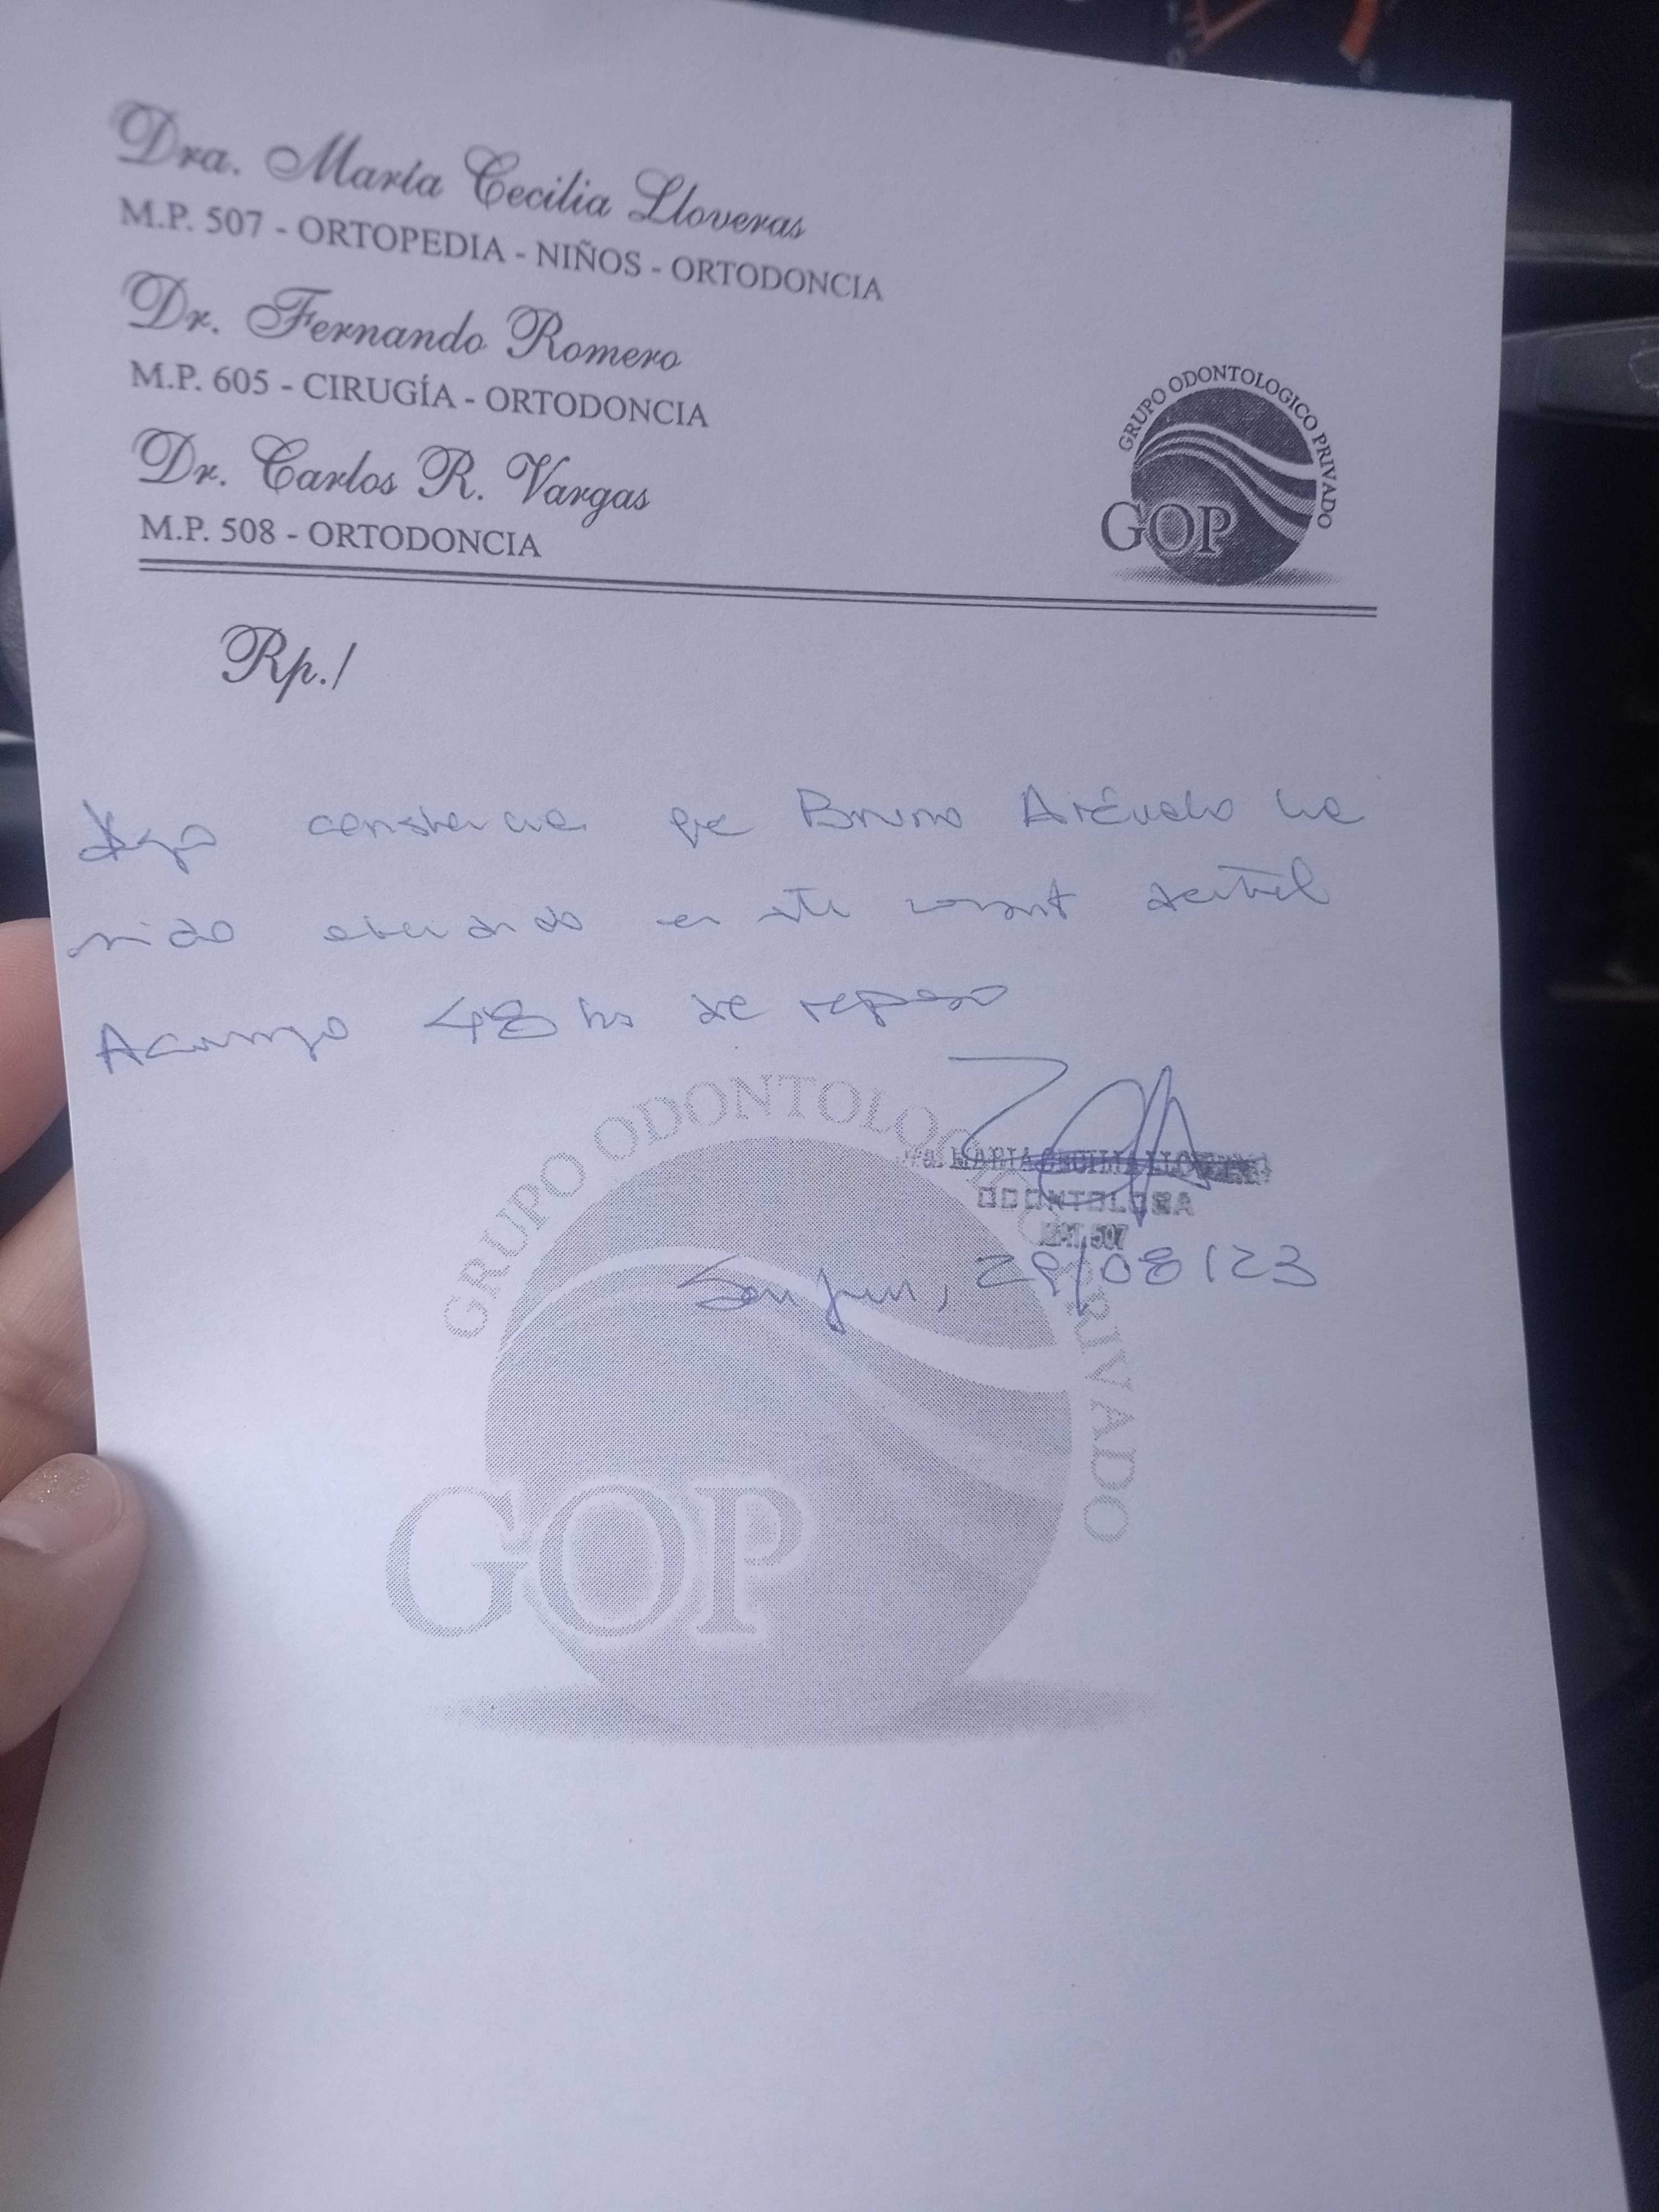 Dra. María Cecilia Lloveras
M.P. 507 - ORTOPEDIA - NIÑOS - ORTODONCIA
Dr. Fernando Romero
M.P. 605 - CIRUGÍA - ORTODONCIA
Dr. Carlos R. Vargas
M.P. 508 - ORTODONCIA
GRUPO ODONTOLOGICO PRIVADO
GOP
Rp./
Dejo constancia que Bruno Arévalo ha
sido atendido en este dental
Aconsejo 48 hs de reposo
MARIA CECILIA LLOVERAS
ODONTOLOGA
MAT. 507
San Juan, 29/08/23
GRUPO ODONTOLOGICO PRIVADO
GOP